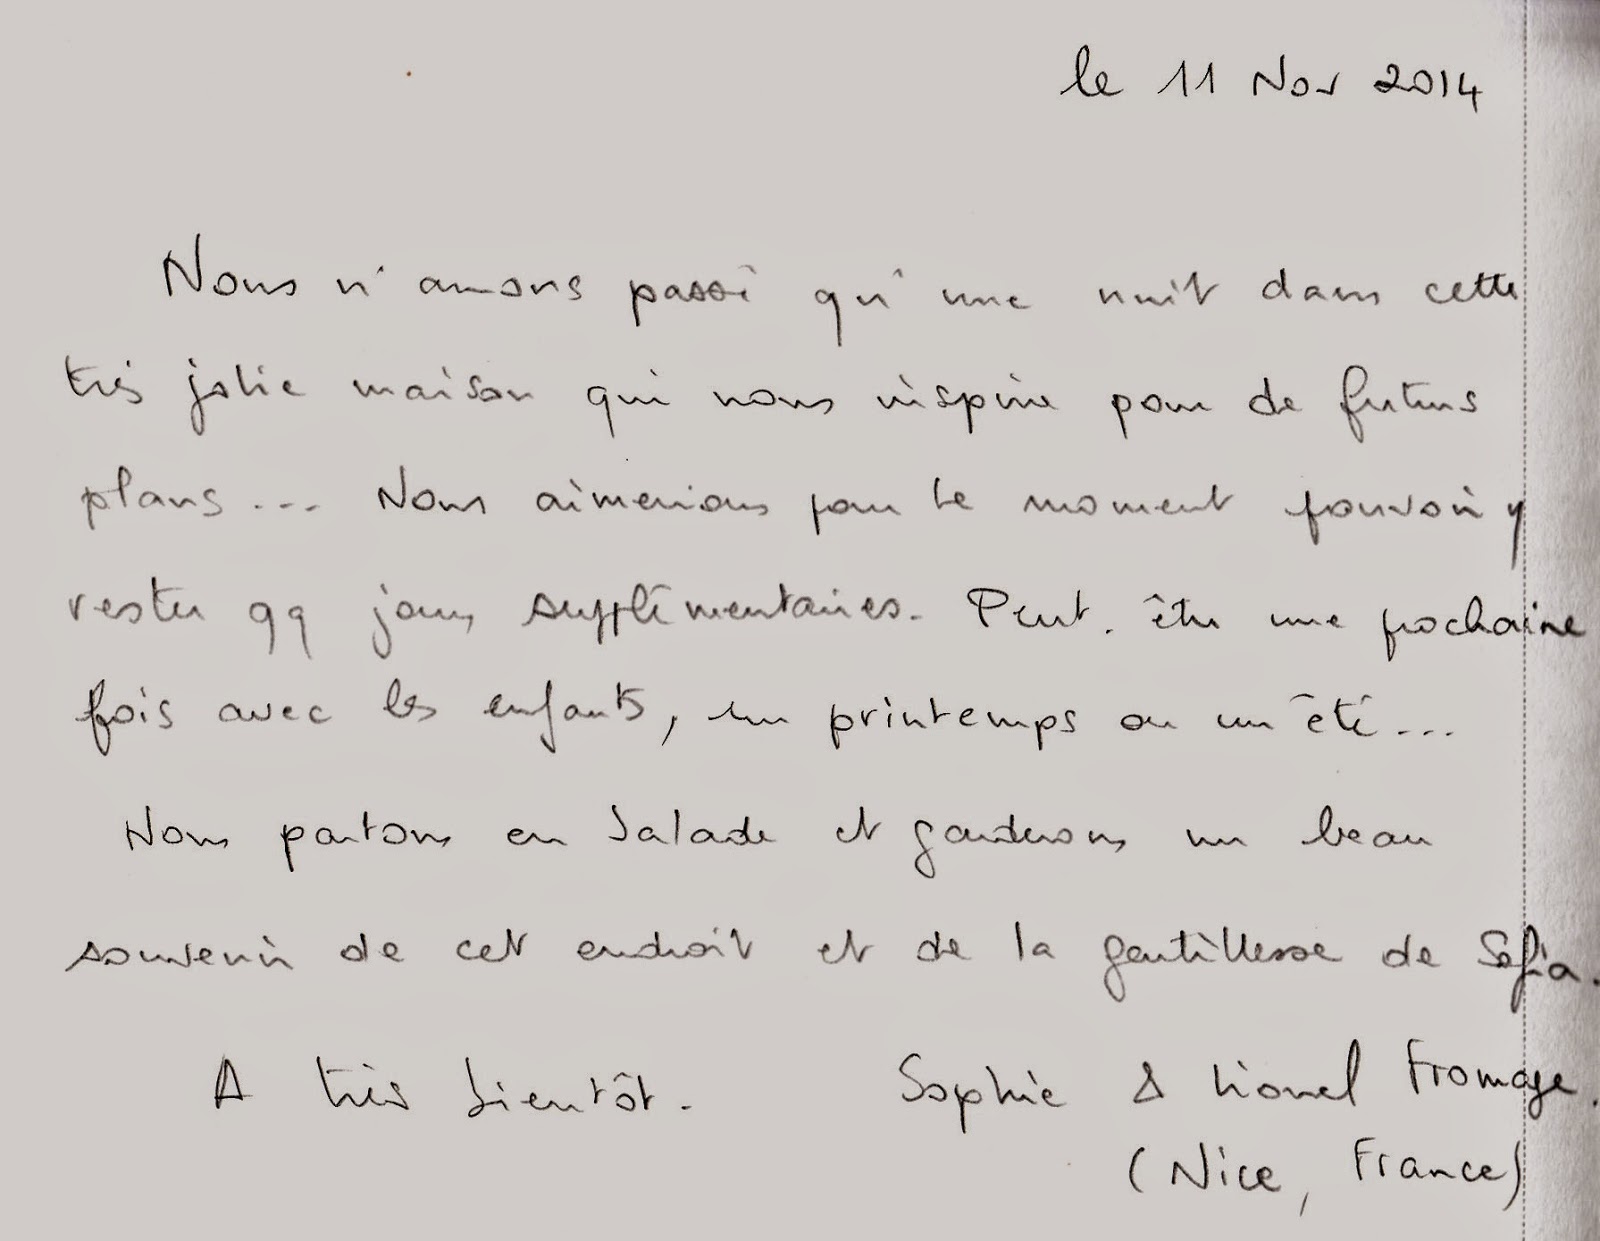 le 11 Nov 2014
Nous n'avons passé qu'une nuit dans cette
très jolie maison qui nous inspire pour de futurs
plans... Nous aimerions pour le moment pouvoir y
rester qq jours supplémentaires. Peut-être une prochaine
fois avec les enfants, un printemps ou un été...
Nous partons en balade et garderons un beau
souvenir de cet endroit et de la gentillesse de Safia.
A très bientôt.
Sophie & Lionel Fromage.
(Nice, France)